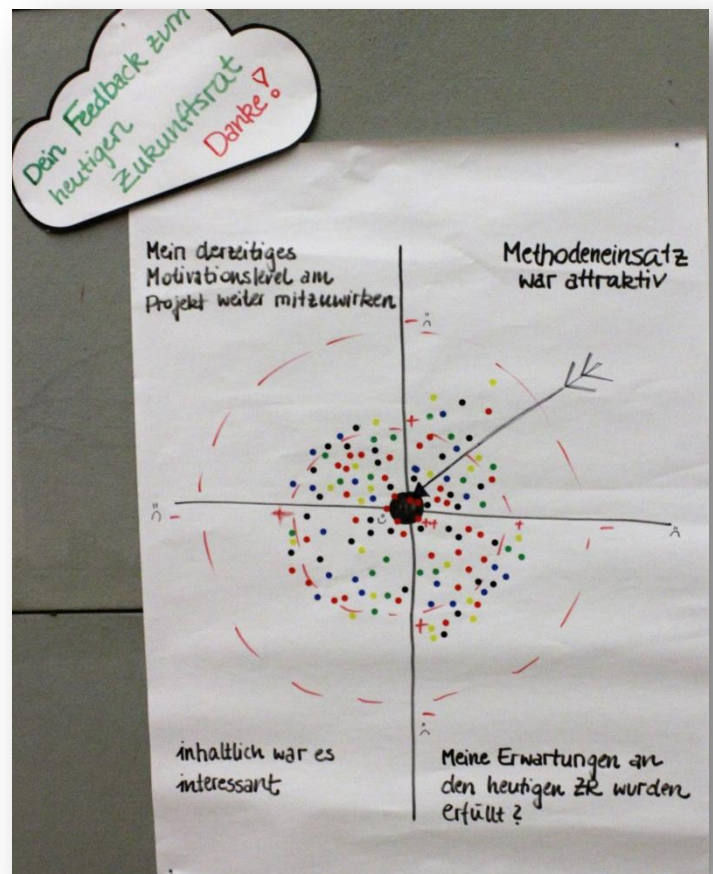 Dein Feedback zum
heutigen
Zukunftsrat
Danke!
Mein derzeitiges
Motivationslevel am
Projekt weiter mitzuwirken
Methodeneinsatz
war attraktiv
-
+
-
+
++
+
-
+
-
inhaltlich war es
interessant
Meine Erwartungen an
den heutigen ZR wurden
erfüllt?